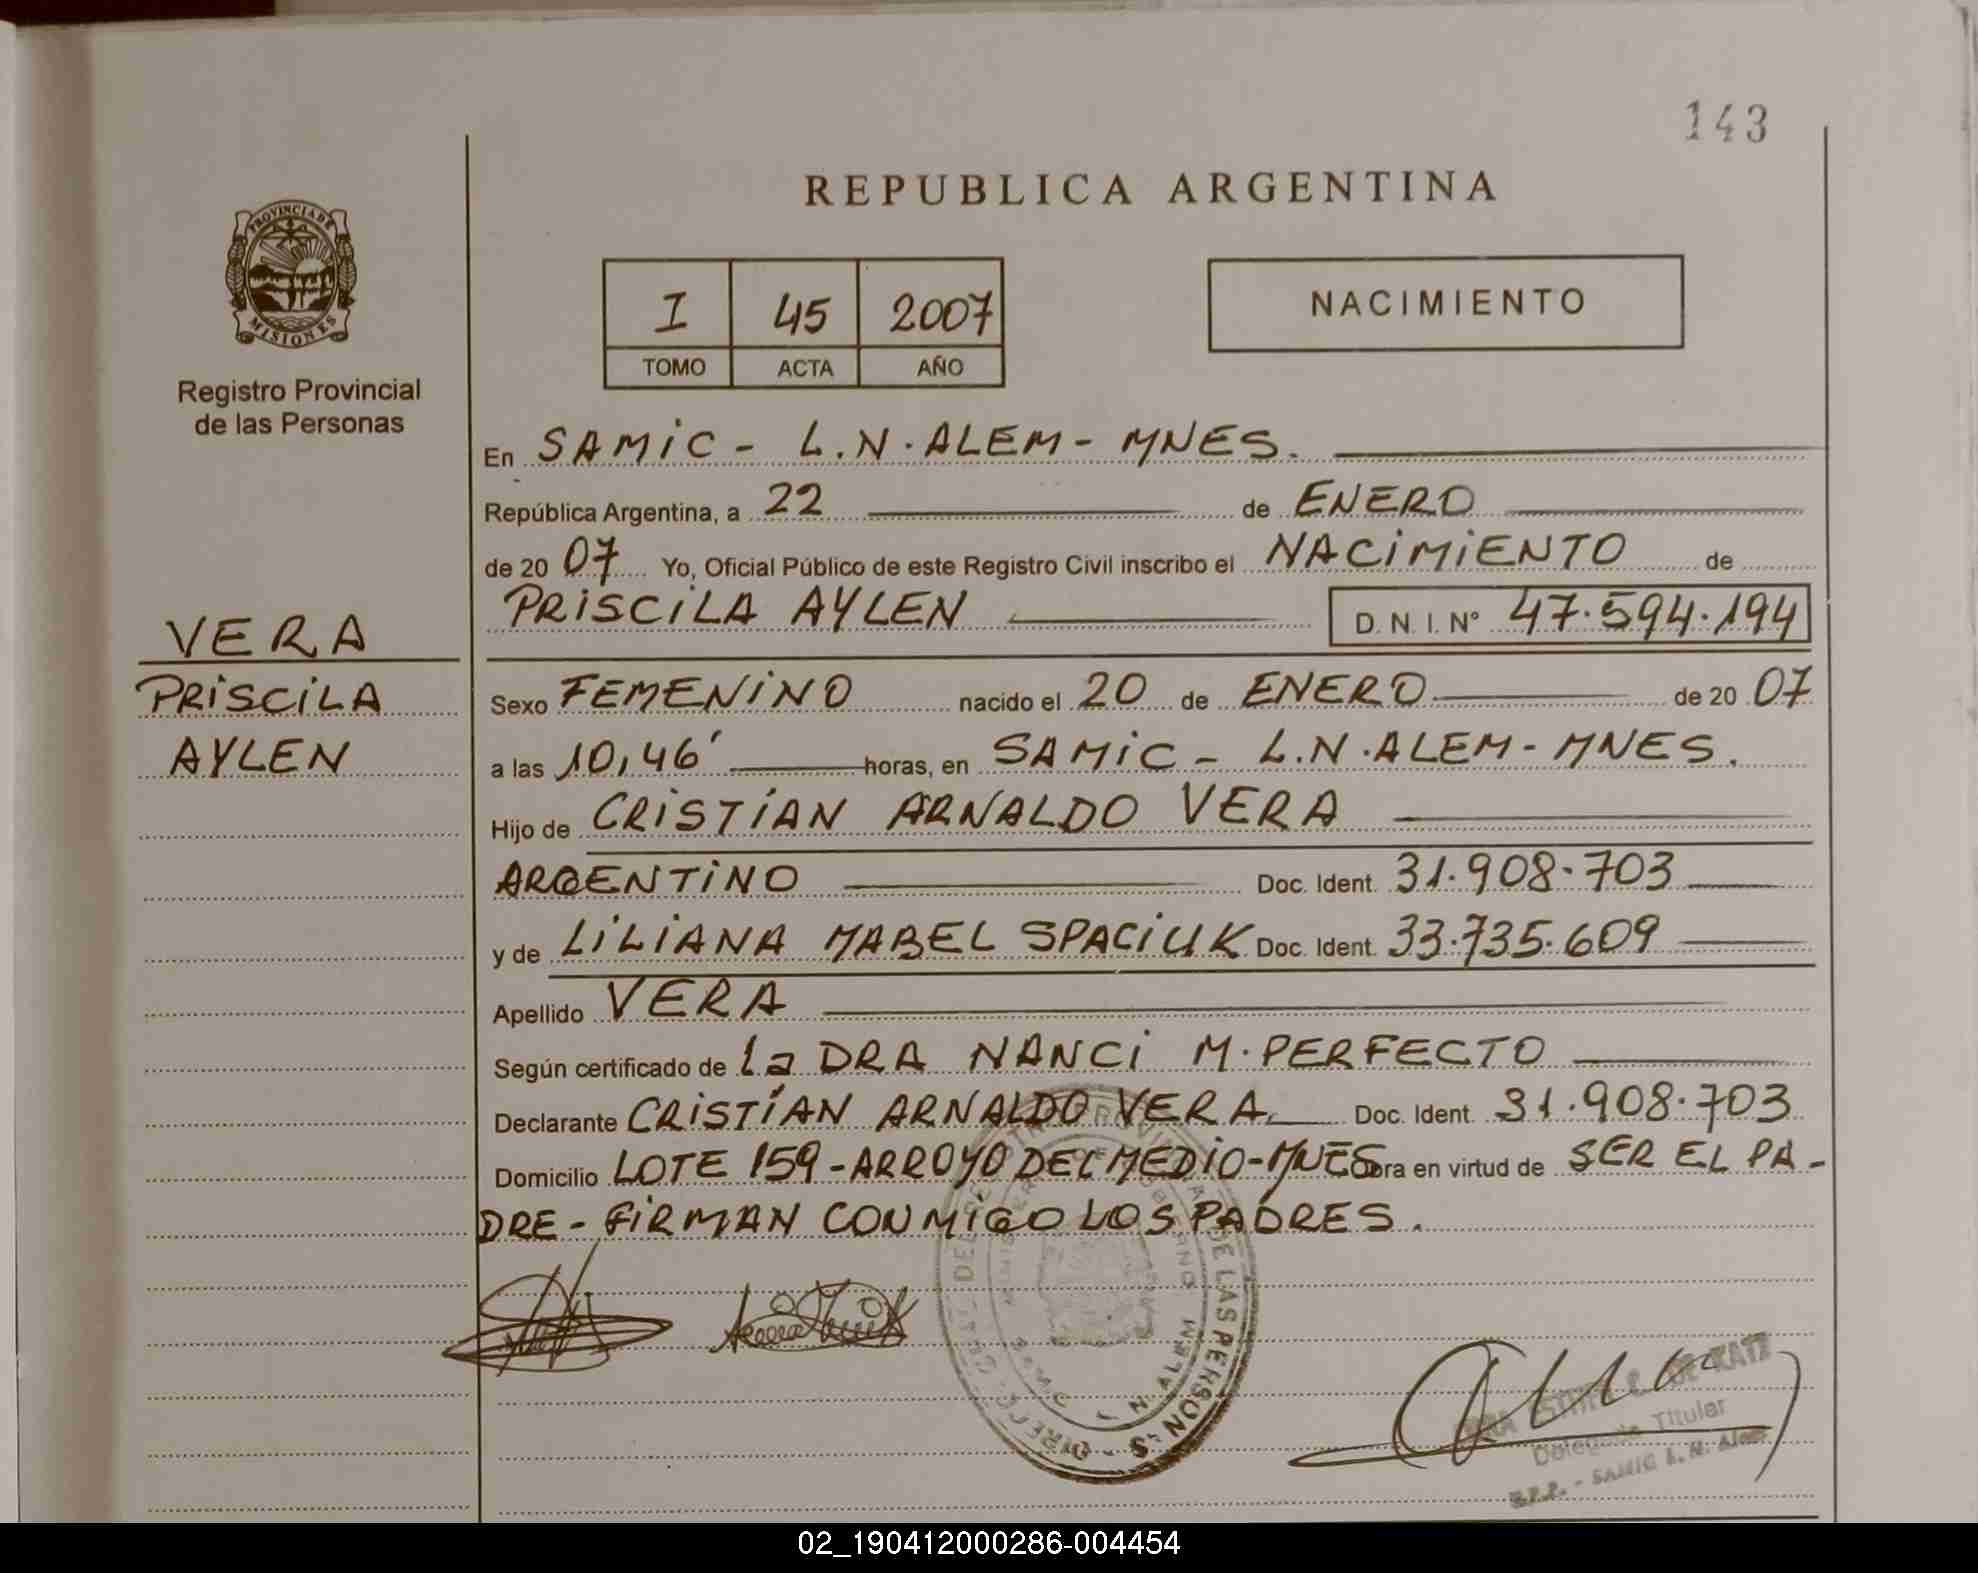 143
REPUBLICA ARGENTINA
PROVINCIA DE
MISIONES
Registro Provincial
de las Personas
I 45 2007
TOMO ACTA AÑO
NACIMIENTO
En SAMIC - L.N. ALEM - MNES.
República Argentina, a 22 de ENERO
de 20 07 Yo, Oficial Público de este Registro Civil inscribo el NACIMIENTO de
PRISCILA AYLEN D. N. I. Nº 47.594.194
VERA
PRISCILA
AYLEN
Sexo FEMENINO nacido el 20 de ENERO de 20 07
a las 10,46' horas, en SAMIC - L.N. ALEM - MNES.
Hijo de CRISTIAN ARNALDO VERA
ARGENTINO Doc. Ident. 31.908.703
y de LILIANA MABEL SPACIUK Doc. Ident. 33.735.609
Apellido VERA
Según certificado de La DRA NANCI M. PERFECTO
Declarante CRISTIAN ARNALDO VERA Doc. Ident. 31.908.703
Domicilio LOTE 159 - ARROYO DEL MEDIO - MNES Obra en virtud de SER EL PA-
DRE - FIRMAN CONMIGO LOS PADRES.
DE LAS PERSONAS
N. ALEM
DE KATZ
Delegada Titular
R.P.P. - SAMIC L. N. Alem
02_190412000286-004454